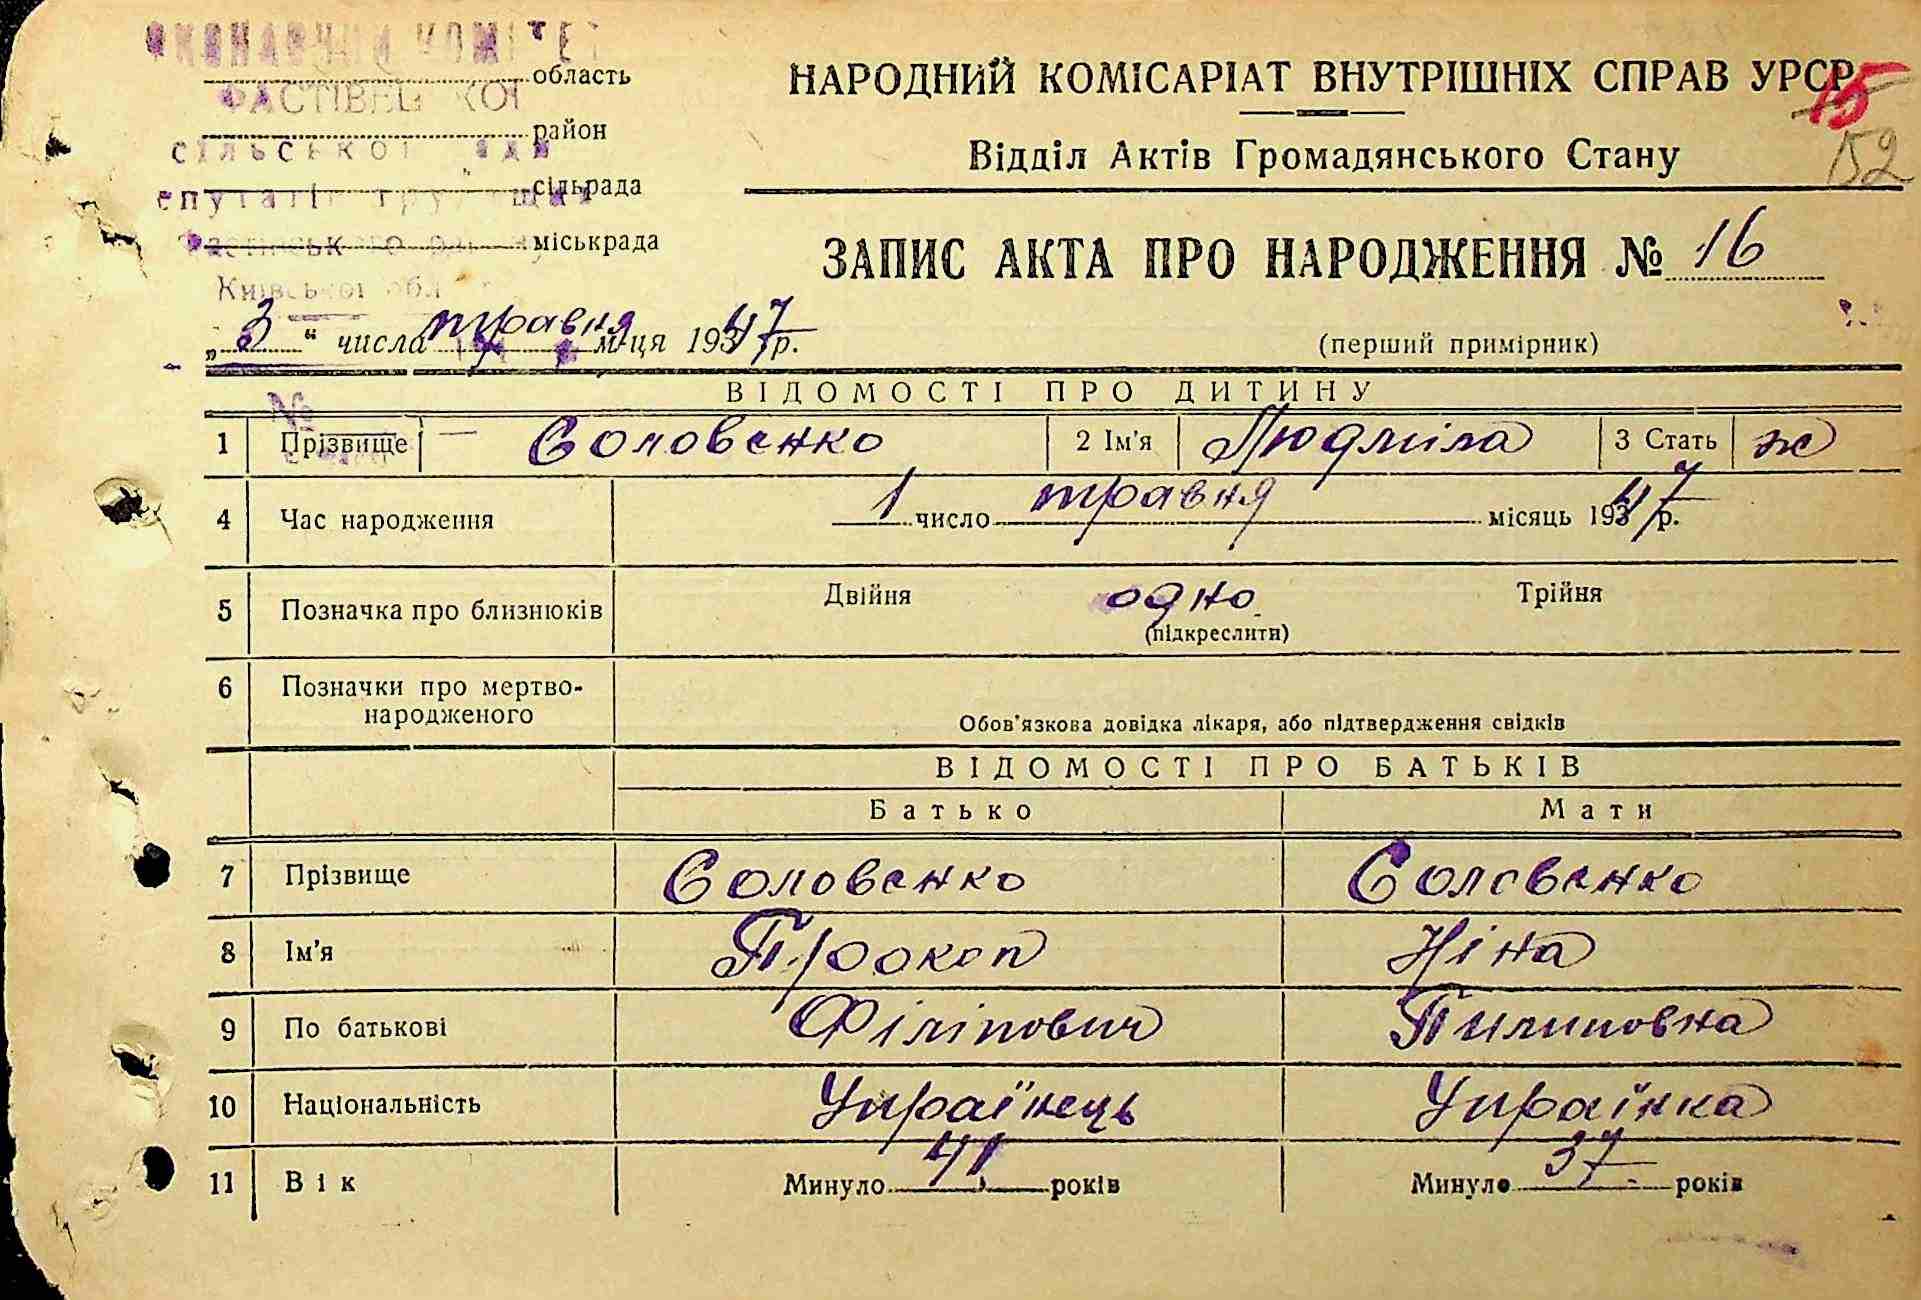 ВИКОНАВЧИЙ КОМІТЕТ
область
ФАСТІВЕЦЬКОЇ
район
сільської ради
сільрада
депутатів трудящих
міськрада
Фастівського району
Київської обл
НАРОДНИЙ КОМІСАРІАТ ВНУТРІШНІХ СПРАВ УРСР
15
Відділ Актів Громадянського Стану
152
ЗАПИС АКТА ПРО НАРОДЖЕННЯ № 16
„3“ числа травня м-ця 1947 р.
(перший примірник)
№
ВІДОМОСТІ ПРО ДИТИНУ
1 Прізвище Соловенко 2 Ім'я Людміла 3 Стать ж
4 Час народження 1 число травня місяць 1947 р.
5 Позначка про близнюків Двійня одно Трійня
(підкреслити)
6 Позначки про мертво-
народженого
Обов'язкова довідка лікаря, або підтвердження свідків
ВІДОМОСТІ ПРО БАТЬКІВ
Батько Мати
7 Прізвище Соловенко Соловенко
8 Ім'я Прокоп Ніна
9 По батькові Філіпович Пилиповна
10 Національність Українець Українка
11 Вік Минуло 41 років Минуло 37 років